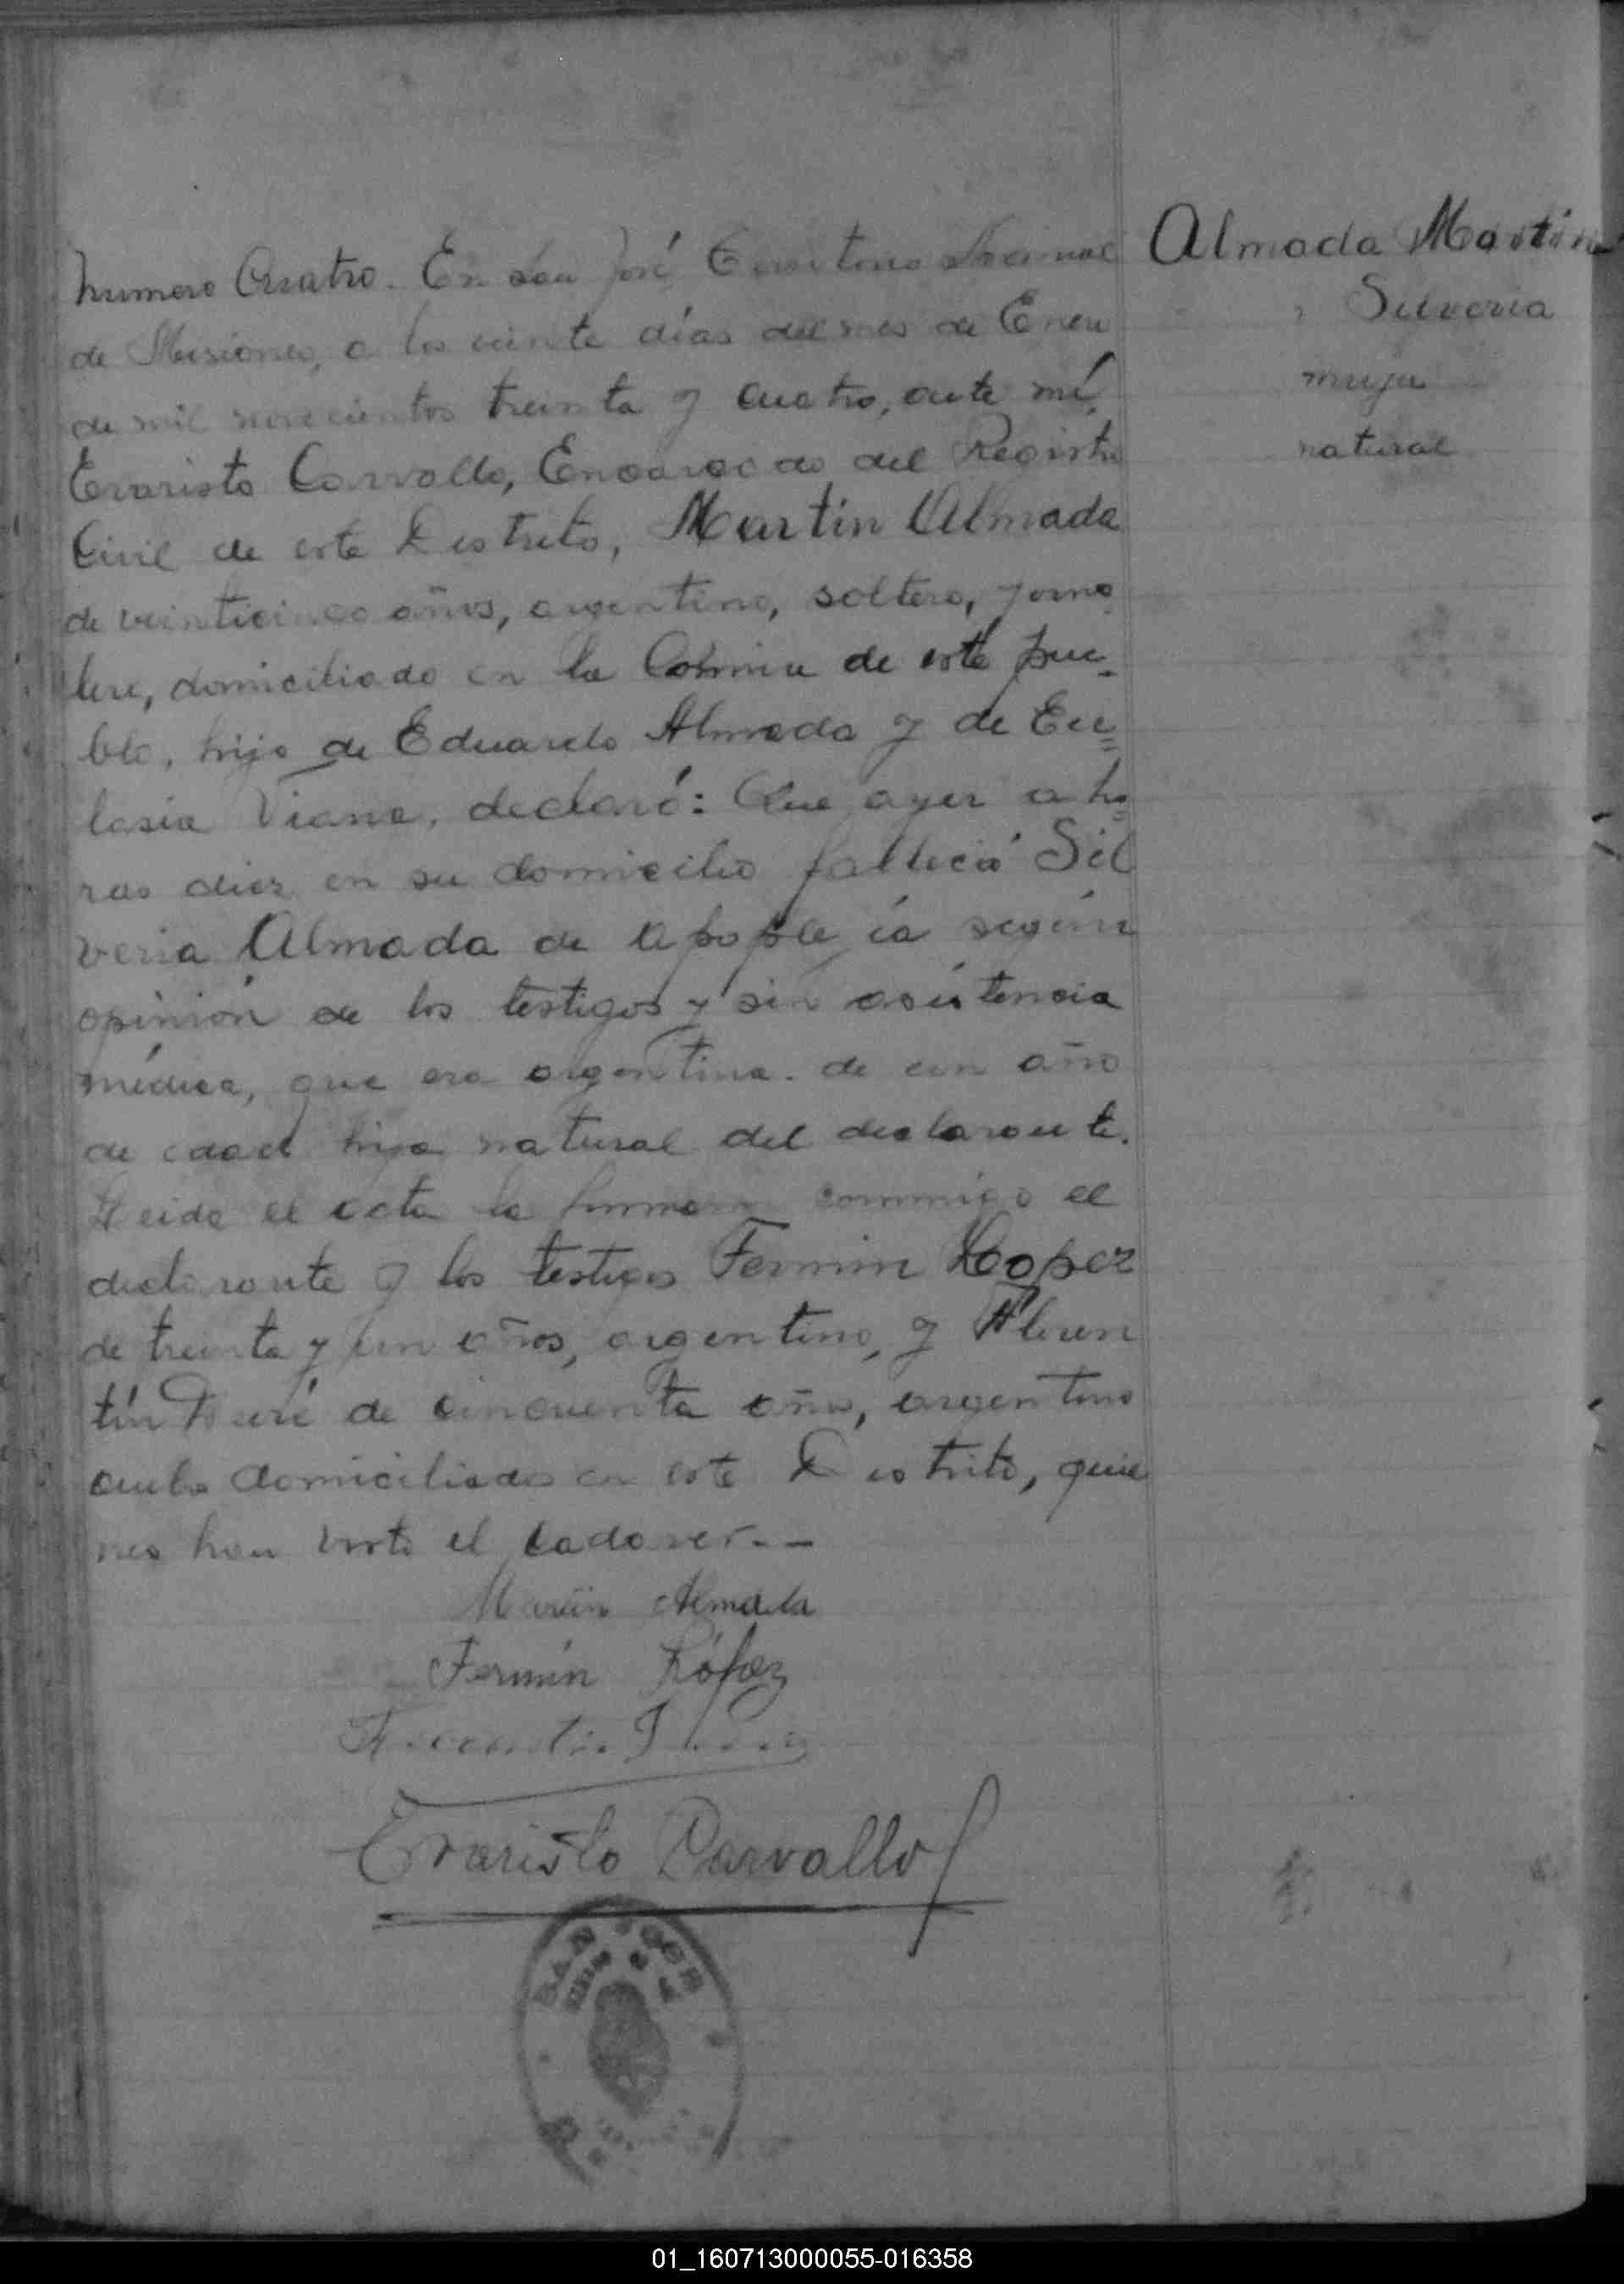 Numero Cuatro. En San José Territorio Nacional
de Misiones, a los veinte días del mes de Enero
de mil novecientos treinta y cuatro, ante mí,
Evaristo Carvallo, Encargado del Registro
Civil de este Distrito, Martin Almada
de veinticinco años, argentino, soltero, jorna
lero, domiciliado en la Colonia de este pue-
blo, hijo de Eduardo Almada y de Eu=
lasia Viana, declaró: Que ayer a ho=
ras diez en su domicilio falleció Sil
veria Almada de apoplejía según
opinión de los testigos y sin asistencia
médica, que era argentina. de un año
de edad hija natural del declarante.
Leida el acta la firmaron conmigo el
declarante y los testigos Fermin Lopez
de treinta y un años, argentino, y Floren
tín de cincuenta años, argentino
ambos domiciliados en este Distrito, quie
nes han visto el cadaver.--
Martin Almada
Fermín López
Evaristo Carvallo
SAN JOSE
Almada Martín
Silveria
mujer
natural
01_160713000055-016358